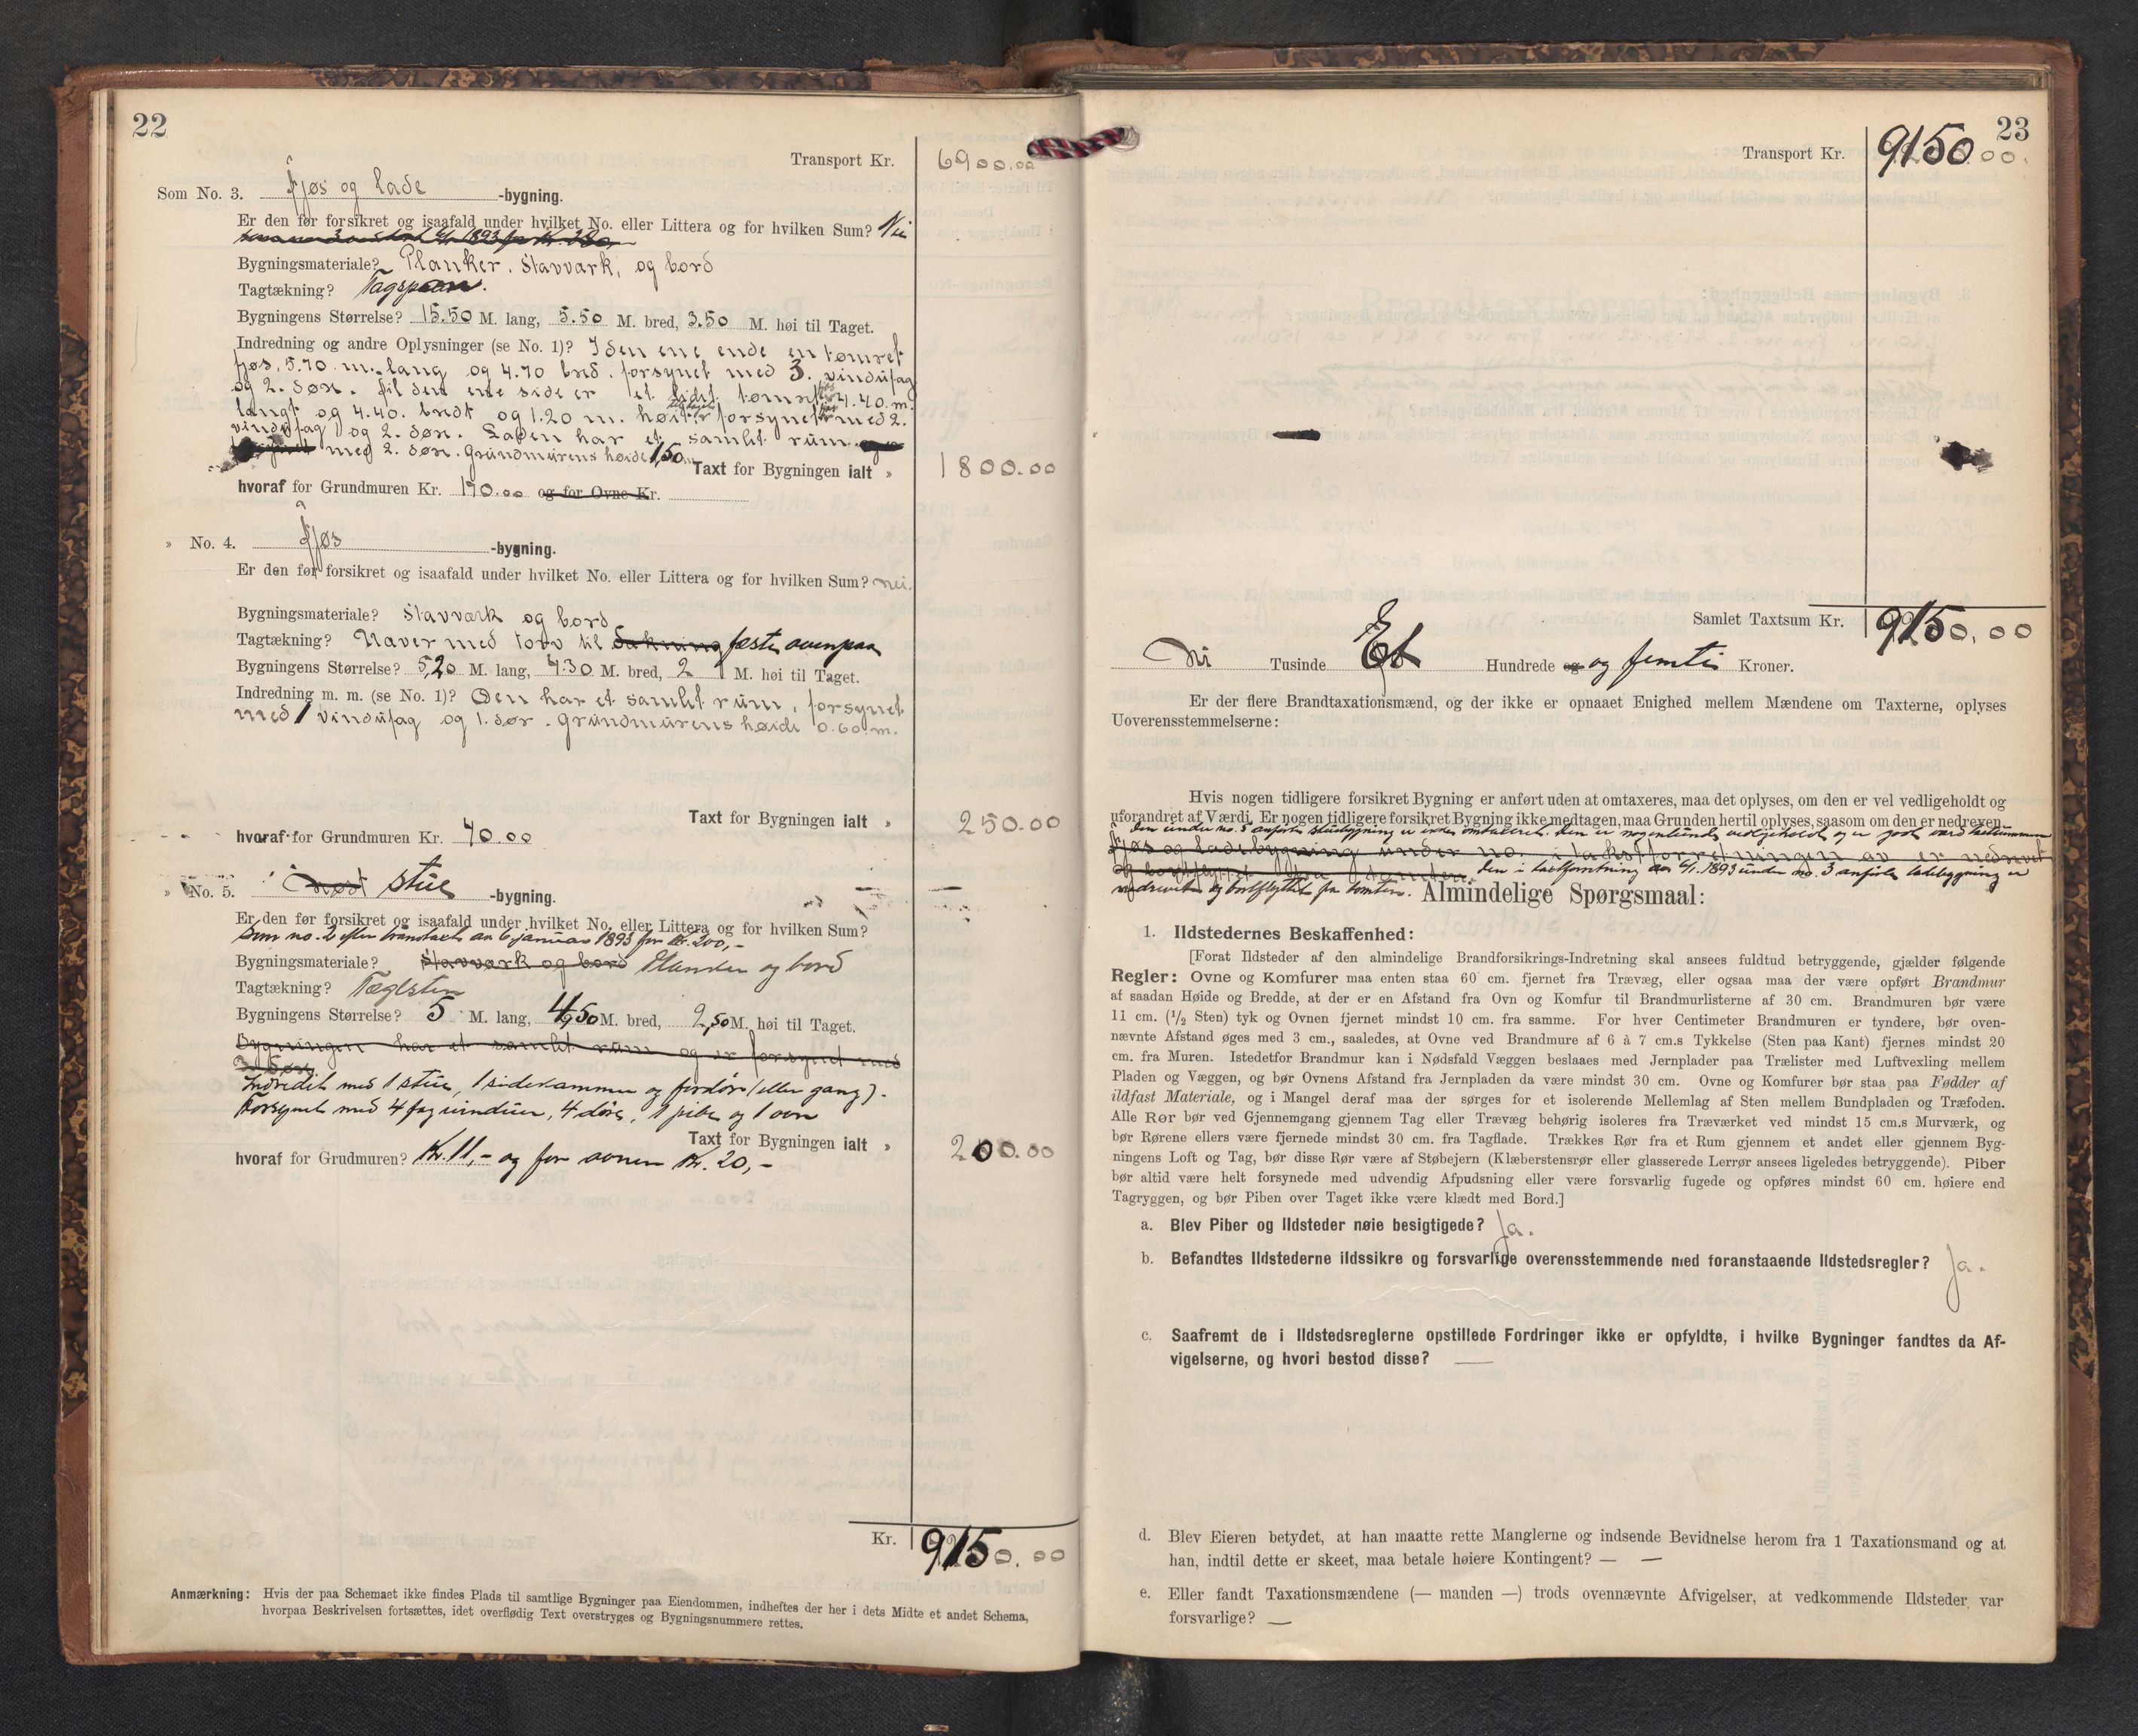 22
Transport Kr. 6900.00
Som No. 3. Fjøs og lade -bygning.
Er den før forsikret og isaafald under hvilket No. eller Littera og for hvilken Sum? Nei
Bygningsmateriale? Planker, Stavvark, og bord
Tagtækning? Tagspaan.
Bygningens Størrelse? 15.50 M. lang, 5.50 M. bred, 3.50 M. høi til Taget.
Indredning og andre Oplysninger (se No. 1)? I den ene ende en tømret
fjøs, 5.70 m. lang og 4.70 bred. forsynet med 3. vindufag
og 2. døre. til den ene side er et lidet tømret 4.40. m.
langt og 4.40. bredt og 1.20 m. høit forsynet med 2.
vindufag og 2. døre. Laden har et samlet rum
med 2. døre. Grundmurens høide 1,50 m
Taxt for Bygningen ialt „ 1800.00
hvoraf for Grundmuren Kr. 170.00 og for Ovne Kr.
„ No. 4. Fjøs -bygning.
Er den før forsikret og isaafald under hvilket No. eller Littera og for hvilken Sum? nei.
Bygningsmateriale? Stavværk og bord
Tagtækning? Naver med torv til fæste ovenpaa
Bygningens Størrelse? 5,20 M. lang, 4.30 M. bred, 2 M. høi til Taget.
Indredning m. m. (se No. 1)? Den har et samlet rum, forsynet
med 1 vindufag og 1. dør. Grundmurens høide 0.60 m.
Taxt for Bygningen ialt „ 250.00
hvoraf for Grundmuren Kr. 40.00
„ No. 5. Nøst stue -bygning.
Er den før forsikret og isaafald under hvilket No. eller Littera og for hvilken Sum?
Som no. 2 efter brandtaxt av 6 januar 1893 for kr. 200,-
Bygningsmateriale? Stavvark og bord Planker og bord
Tagtækning? Teglsten
Bygningens Størrelse? 5 M. lang, 4,50 M. bred, 2,50 M. høi til Taget.
Bygningen har et samlet rum og er forsynet med
2 døre
Indredet med 1 stue, 1 sidekammer og fordør (eller gang).
Forsynet med 4 fag vinduer, 4 døre, 1 pibe og 1 ovn
Taxt for Bygningen ialt „ 200.00
hvoraf for Grudmuren? Kr. 11,- og for ovnen Kr. 20,-
Kr. 9150.00
Anmærkning: Hvis der paa Schemaet ikke findes Plads til samtlige Bygninger paa Eiendommen, indheftes der her i dets Midte et andet Schema,
hvorpaa Beskrivelsen fortsættes, idet overflødig Text overstryges og Bygningsnummere rettes.
23
Transport Kr. 9150.00.
Samlet Taxtsum Kr. 9150.00
Ni Tusinde Et Hundrede og og femti Kroner.
Er der flere Brandtaxationsmænd, og der ikke er opnaaet Enighed mellem Mændene om Taxterne, oplyses
Uoverensstemmelserne:
Hvis nogen tidligere forsikret Bygning er anført uden at omtaxeres, maa det oplyses, om den er vel vedligeholdt og
uforandret af Værdi. Er nogen tidligere forsikret Bygning ikke medtagen, maa Grunden hertil oplyses, saasom om den er nedreven.
Den under no. 5 anførte stuebygning er ikke omtaxeret. Den er nogenlunde vedligeholdt og er godt værd
fjøs og ladebygning under no. i takstforretningen av er nedrevet
og bortflyttet fra tomten. Den i taxtforretning av 6/1. 1893 under no. 3 anførte ladebygning er
nedrevet og bortflyttet fra tomten.
Almindelige Spørgsmaal:
1. Ildstedernes Beskaffenhed:
[Forat Ildsteder af den almindelige Brandforsikrings-Indretning skal ansees fuldtud betryggende, gjælder følgende
Regler: Ovne og Komfurer maa enten staa 60 cm. fjernet fra Trævæg, eller ogsaa maa der være opført Brandmur
af saadan Høide og Bredde, at der er en Afstand fra Ovn og Komfur til Brandmurlisterne af 30 cm. Brandmuren bør være
11 cm. (1/2 Sten) tyk og Ovnen fjernet mindst 10 cm. fra samme. For hver Centimeter Brandmuren er tyndere, bør oven-
nævnte Afstand øges med 3 cm., saaledes, at Ovne ved Brandmure af 6 à 7 cm.s Tykkelse (Sten paa Kant) fjernes mindst 20
cm. fra Muren. Istedetfor Brandmur kan i Nødsfald Væggen beslaaes med Jernplader paa Trælister med Luftvexling mellem
Pladen og Væggen, og bør Ovnens Afstand fra Jernpladen da være mindst 30 cm. Ovne og Komfurer bør staa paa Fødder af
ildfast Materiale, og i Mangel deraf maa der sørges for et isolerende Mellemlag af Sten mellem Bundpladen og Træfoden.
Alle Rør bør ved Gjennemgang gjennem Tag eller Trævæg behørig isoleres fra Træværket ved mindst 15 cm.s Murværk, og
bør Rørene ellers være fjernede mindst 30 cm. fra Tagflade. Trækkes Rør fra et Rum gjennem et andet eller gjennem Byg-
ningens Loft og Tag, bør disse Rør være af Støbejern (Klæberstensrør eller glasserede Lerrør ansees ligeledes betryggende). Piber
bør altid være helt forsynede med udvendig Afpudsning eller være forsvarlig fugede og opføres mindst 60 cm. høiere end
Tagryggen, og bør Piben over Taget ikke være klædt med Bord.]
a. Blev Piber og Ildsteder nøie besigtigede? Ja.
b. Befandtes Ildstederne ildssikre og forsvarlige overensstemmende med foranstaaende Ildstedsregler? Ja.
c. Saafremt de i Ildstedsreglerne opstillede Fordringer ikke er opfyldte, i hvilke Bygninger fandtes da Af-
vigelserne, og hvori bestod disse? —
d. Blev Eieren betydet, at han maatte rette Manglerne og indsende Bevidnelse herom fra 1 Taxationsmand og at
han, indtil dette er skeet, maa betale høiere Kontingent? — —
e. Eller fandt Taxationsmændene (— manden —) trods ovennævnte Afvigelser, at vedkommende Ildsteder var
forsvarlige? —